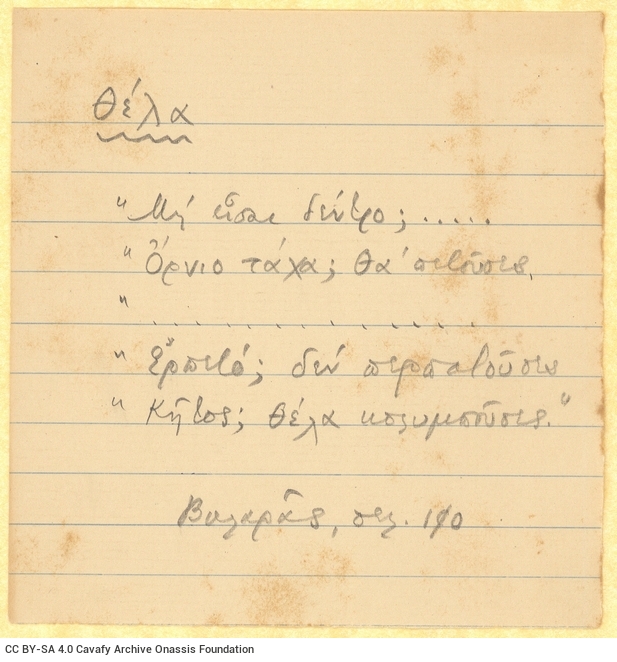 θέλα
"Μή εἶσαι δέντρο; .....
"Ὄρνιο τάχα; θά 'πετοῦσες.
" ..............
"Ἑρπετό; δέν περπατοῦσες
"Κῆτος; θέλα κολυμποῦσες."
Βηλαρᾶς, σελ. 110
CC BY-SA 4.0 Cavafy Archive Onassis Foundation